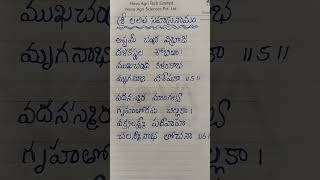 Nova Agri Tech Limited
Nova Agri Sciences Pvt. Ltd.
శ్రీ లలిత సహస్రనామం
అష్టమీ చంద్ర విభ్రాజ
దళికస్థల శోభితా
ముఖచంద్ర కళంకాభ
మృగనాభి విశేషకా ॥5॥
వదనస్మర మాంగల్య
గృహతోరణ చిల్లికా ।
వక్త్రలక్ష్మీ పరీవాహ
చలన్మీనాభ లోచనా ॥6॥